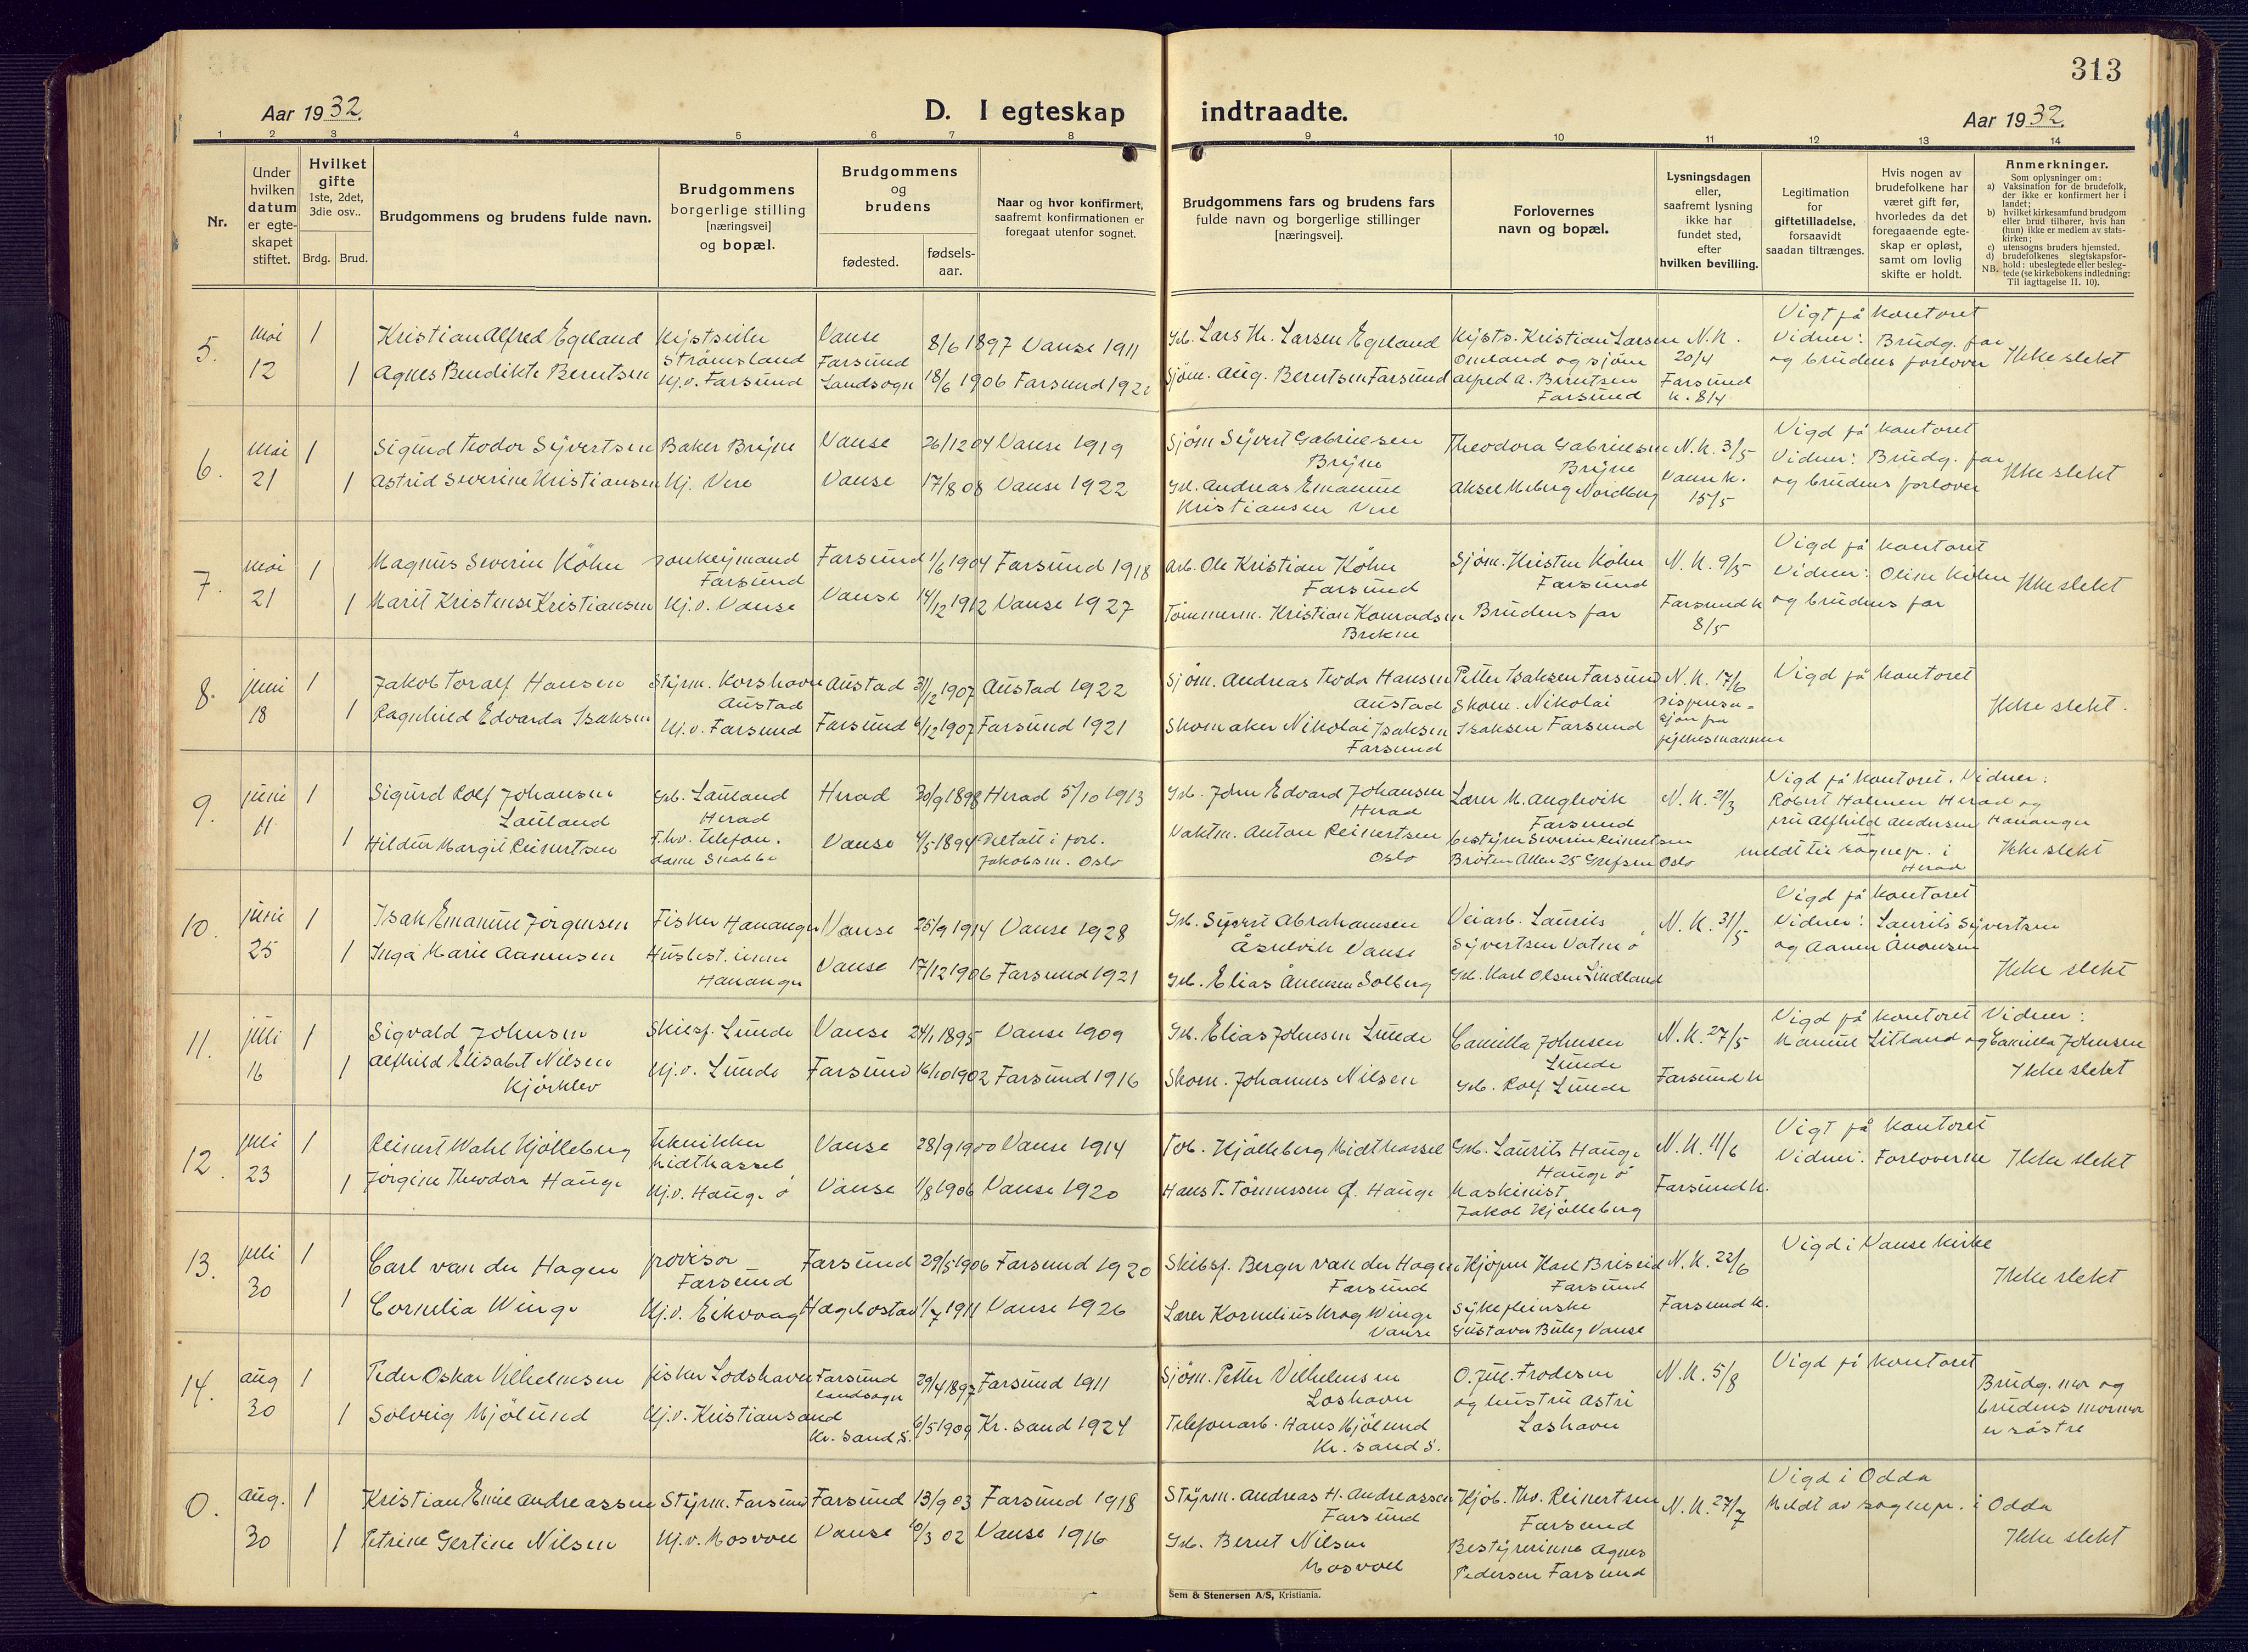 313
Aar 1932.
D. I egteskap indtraadte.
Aar 1932.
1 2 3 4 5 6 7 8 9 10 11 12 13 14
Nr.
Under
hvilken
datum
er egte-
skapet
stiftet.
Hvilket
gifte
1ste, 2det,
3die osv..
Brdg. Brud.
Brudgommens og brudens fulde navn.
Brudgommens
borgerlige stilling
[næringsvei]
og bopæl.
Brudgommens
og
brudens
fødested.
fødsels-
aar.
Naar og hvor konfirmert,
saafremt konfirmationen er
foregaat utenfor sognet.
Brudgommens fars og brudens fars
fulde navn og borgerlige stillinger
[næringsvei].
Forlovernes
navn og bopæl.
Lysningsdagen
eller,
saafremt lysning
ikke har
fundet sted,
efter
hvilken bevilling.
Legitimation
for
giftetilladelse,
forsaavidt
saadan tiltrænges.
Hvis nogen av
brudefolkene har
været gift før,
hvorledes da det
foregaaende egte-
skap er opløst,
samt om lovlig
skifte er holdt.
Anmerkninger.
Som oplysninger om:
a) Vaksination for de brudefolk,
der ikke er konfirmert her i
landet;
b) hvilket kirkesamfund brudgom
eller brud tilhører, hvis han
(hun) ikke er medlem av stats-
kirken;
c) utensogns bruders hjemsted.
d) brudefolkenes slegtskapsfor-
hold: ubeslegtede eller besleg-
NB. tede (se kirkebokens indledning:
Til iagttagelse II. 10).
5.
mai
12
1
1
Kristian Alfred Egeland
Agnes Bendikte Berntsen
Strømsland
Hj.v. Farsund
Vanse
Farsund
Landsogn
8/6 1897
18/6 1906
Vanse 1911
Farsund
Gbr. Lars Kr. Larsen Egeland
Sjøm. Aug. Berntsen Farsund
Kysts. Kristian Larsen
Omland og sjøm
Alfred A. Berntsen
Farsund
N.K.
20/4
Farsund
k. 8/4
Vigt på kontoret
Vidner: Brudg. far
og brudens forlover
Ikke slekt
6.
mai
21
1
1
Sigurd Teodor Syvertsen
Astrid Severine Kristiansen
Baker Bryne
Hj. Vere
Vanse
Vanse
26/12 04
17/8 08
Vanse 1919
Vanse 1922
Sjøm Syvert Gabrielsen
Bryne
Gbr. Andreas Emanuel
Kristiansen Vere
Theodora Gabrielsen
Bryne
Aksel Meberg Nordberg
N.K. 3/5
Vanse k.
15/5
Vigd på kontoret
Vidner: Brudg. far
og brudens forlover
Ikke slekt
7.
mai
21
1
1
Magnus Severin Köhn
Marit Kristense Kristiansen
Donkeymand
Farsund
Hj.v. Vanse
Farsund
Vanse
1/6 1904
14/12 1912
Farsund 1918
Vanse 1927
Arb. Ole Kristian Köhn
Farsund
Tømmerm. Kristian Konradsen
Brekne
Sjøm. Kristen Köhn
Farsund
Brudens far
N.K. 9/5
Farsund k
8/5
Vigd på kontoret
Vidner: Oline Köhn
og brudens far
Ikke slekt
8.
juni
18
1
1
Jakob Toralf Hansen
Ragnhild Edvarda Isaksen
Styrm. Korshavn
Austad
Hj.v. Farsund
Austad
Farsund
31/12 1907
6/12 1907
Austad 1922
Farsund 1921
Sjøm. Andreas Teodor Hansen
Austad
Skomaker Nikolai Isaksen
Farsund
Petter Isaksen Farsund
Skom. Nikolai
Isaksen Farsund
N.K. 17/6
Dispensa-
sjon fra
fylkesmannen
Vigd på kontoret
Ikke slekt.
9.
juni
11
1
1
Sigurd Rolf Johansen
Lauland
Hildur Margit Reinertsen
Gbr. Lauland
Herad
Fhv. telefon.
dame
Herad
Vanse
30/9 1898
4/5 1894
Herad 5/10 1913
Deltatt i forb.
Jakobsm. Oslo
Gbr. John Edvard Johansen
Herad
Vaktm. Anton Reinertsen
Oslo
Lærer M. Anglevik
Farsund
bestyrer Severin Reinertsen
Bråten Alle 25 Grefsen Oslo
N.K. 21/3
Vigd på kontoret. Vidner:
Robert Halmen Herad og
fru Alfhild Andersen Hananger
meldt til sognepr. i
Herad
Ikke slekt
10.
juni
25
1
1
Isak Emanuel Jörgensen
Inga Marie Aanensen
Fisker Hananger
Husbest.inne
Hananger
Vanse
Vanse
25/9 1914
17/12 1906
Vanse 1928
Farsund 1921
Gbr. Syvert Abrahamsen
Åsulvik Vanse
Gbr. Elias Ånensen Solberg
Veiarb. Laurits
Syvertsen Vatne ö
Gbr. Karl Olsen Lindland
N.K. 31/5
Vigd på kontoret
Vidner: Laurits Syvertsen
og Aanen Ånonsen
Ikke slekt
11.
juli
16
1
1
Sigvald Johnsen
Alfhild Elisabet Nilsen
Kjörklev
Skibsf. Lunde
Hj.v. Lunde
Vanse
Farsund
24/1 1895
16/10 1902
Vanse 1909
Farsund 1916
Gbr. Elias Johnsen Lunde
Skom. Johannes Nilsen
Camilla Johnsen
Lunde
Gbr. Rolf Lunde
N.K. 27/5
Farsund k
Vigd på kontoret Vidner:
Manuel Litland og Camilla Johnsen
Ikke slekt
12.
juli
23
1
1
Reinert Wahl Hjölleberg
Jörgine Theodora Hauge
tekniker
Midthassel
Hj.v. Hauge ö
Vanse
Vanse
28/9 1900
1/8 1906
Vanse 1914
Vanse 1920
Tob. Hjölleberg Midthassel
Hans T. Tönnessen Ö. Hauge
Gbr. Laurits Hauge
Hauge ö
Maskinist
Jakob Hjölleberg
N.K. 11/6
Farsund k.
Vigt på kontoret
Vidner: Forloverne
Ikke slekt
13.
juli
30
1
1
Carl van der Hagen
Cornelia Winge
provisor
Farsund
Hj.v. Eikvaag
Farsund
Hægebostad
29/5 1906
1/7 1911
Farsund 1920
Vanse 1926
Skibsf. Berger van der Hagen
Farsund
Lærer Kornelius Krog Winge
Vanse
Kjøpm Karl Briseid
Farsund
Sykepleierske
Gustava Buley Vanse
N.K. 22/6
Farsund k.
Vigd i Vanse kirke
Ikke slekt
14.
aug
30
1
1
Peder Oskar Vilhelmsen
Solveig Mjölund
fisker Loshavn
Hj.v. Kristiansand
Farsund
landsogn
Kr. sand S.
29/4 1897
6/5 1909
Farsund 1911
Kr. sand 1924
Sjøm. Petter Vilhelmsen
Loshavn
Telefonarb. Hans Mjölund
Kr. sand S.
O. Jul. Frodesen
og hustru Astri
Loshavn
N.K. 5/8
Vigd på kontoret
Brudg. mor og
brudens mormor
er søstre
0.
aug.
30
1
1
Kristian Emil Andreassen
Petrine Gertine Nilsen
Styrm. Farsund
Hj.v. Mosvoll
Farsund
Vanse
13/9 03
10/3 02
Farsund 1918
Vanse 1916
Styrm. Andreas H. Andreassen
Farsund
Gbr. Bernt Nilsen
Mosvoll
Kjöb. Thv. Reinertsen
Farsund
Bestyrerinne Agnes
Pedersen Farsund
N.K. 27/7
Vigd i Odda
Meldt av sognepr. i Odda
Ikke slekt
Sem & Stenersen A/S, Kristiania.